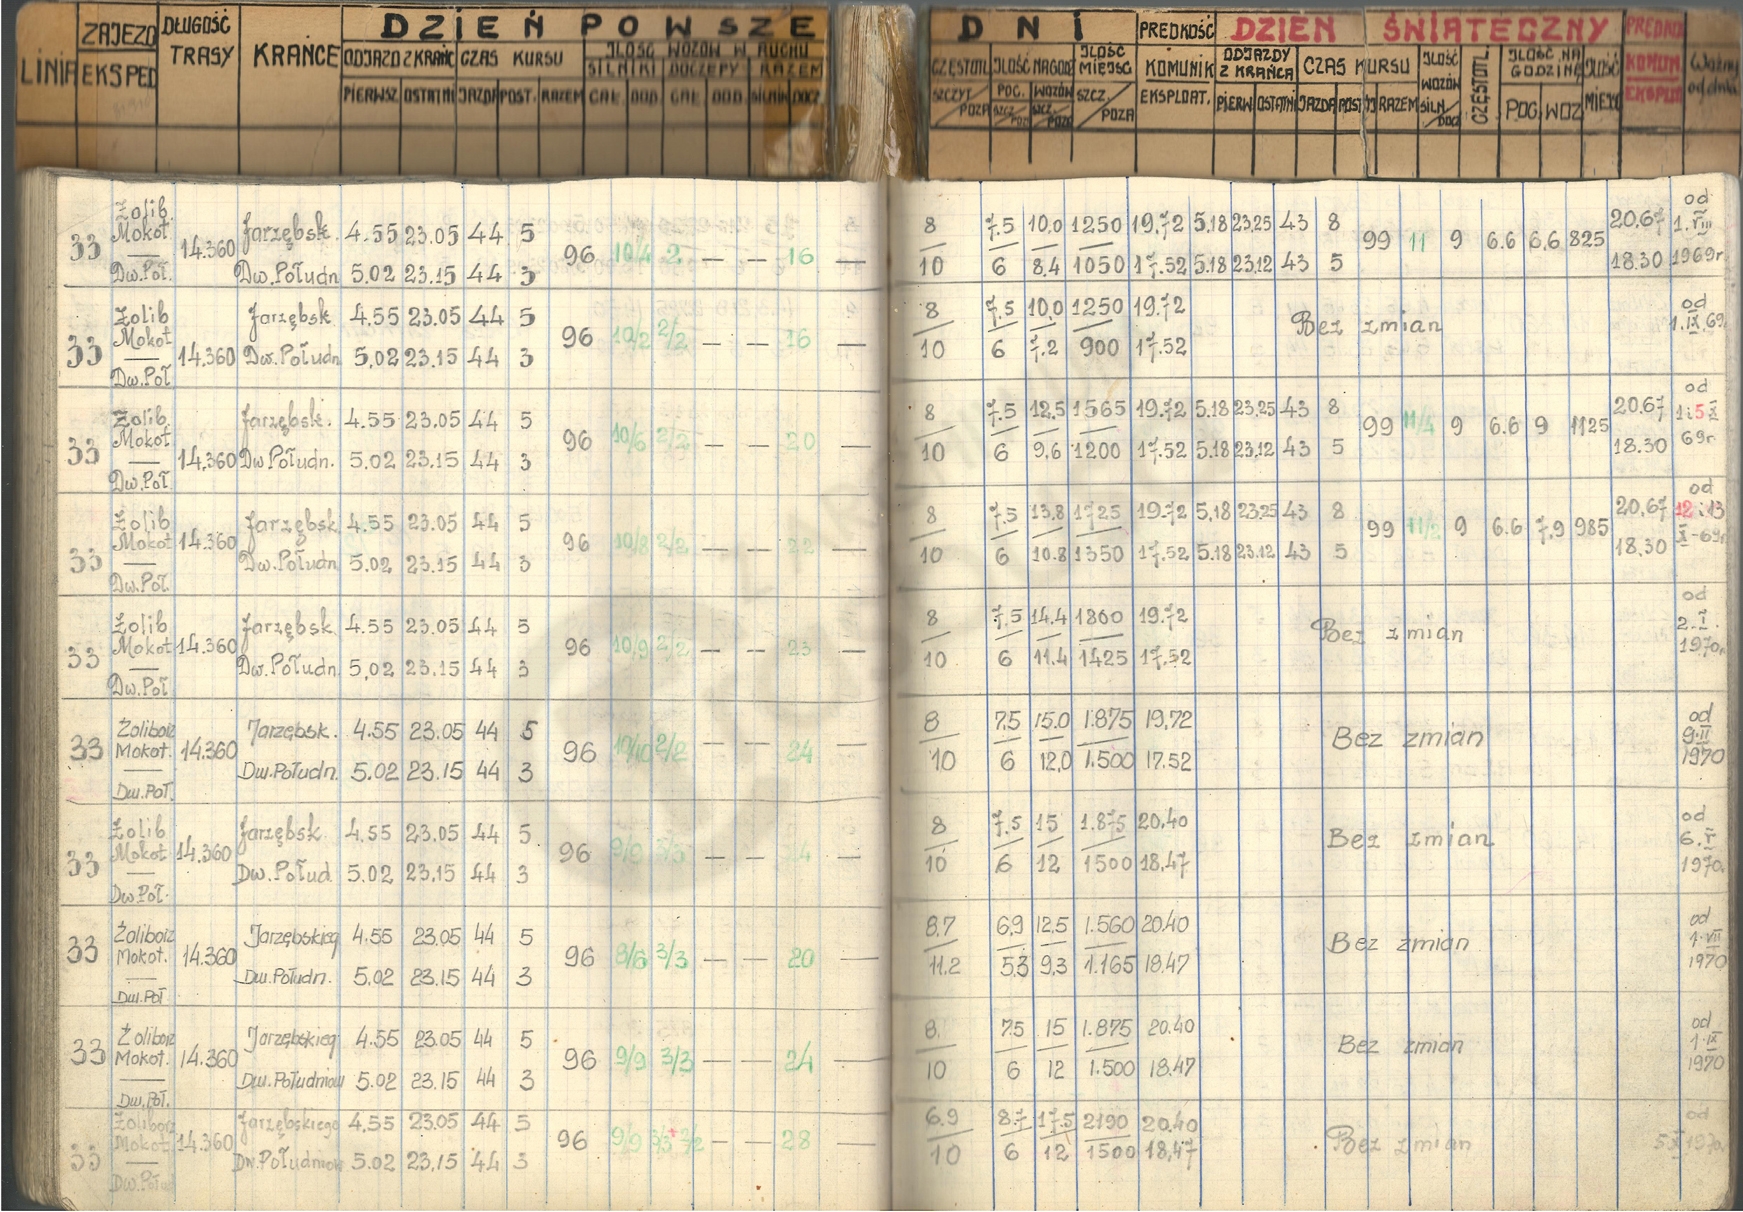 LINIA ZAJEZD EKSPED DŁUGOŚĆ TRASY KRAŃCE
DZIEŃ POWSZE
ODJAZD Z KRAŃC CZAS KURSU ILOŚĆ WOZÓW W RUCHU
SILNIKI DOCZEPY RAZEM
PIERWSZ. OSTATNI JAZDA POST. RAZEM CAŁ. DOD. CAŁ. DOD. SILNIK DOCZ.
DNI
CZĘSTOTL. ILOŚĆ NA GODZ ILOŚĆ MIEJSC PRĘDKOŚĆ KOMUNIK EKSPLOAT.
SZCZYT/POZA POC. WOZÓW SZCZ./POZA
DZIEŃ ŚWIĄTECZNY
ODJAZDY Z KRAŃCA CZAS KURSU ILOŚĆ WOZÓW SILN/DOCZ CZĘSTOTL. ILOŚĆ NA GODZINĘ ILOŚĆ MIEJSC
PIERW OSTATNI JAZDA POST RAZEM POC. WOZ
PRĘDKO KOMUN. EKSPLO
Ważny od dnia
33 Żolib. Mokot. — Dw.Poł. 14.360
Jarzębsk. 4.55 23.05 44 5
Dw.Połudn 5.02 23.15 44 3
96 10/4 2 — — 16 —
8 7.5 10,0 1250 19.72 5.18 23.25 43 8
10 6 8.4 1050 17.52 5.18 23.12 43 5
99 11 9 6.6 6,6 825
20,67 18.30
od 1.VIII 1969r
33 Żolib Mokot — Dw.Poł. 14.360
Jarzębsk 4.55 23.05 44 5
Dw.Połudn 5,02 23.15 44 3
96 10/2 2/2 — — 16 —
8 7.5 10,0 1250 19.72
10 6 7.2 900 17.52
Bez zmian
od 1.IX.69
33 Żolib. Mokot — Dw.Poł. 14.360
Jarzębsk. 4.55 23.05 44 5
Dw Połudn. 5.02 23.15 44 3
96 10/6 2/2 — — 20 —
8 7.5 12,5 1565 19.72 5.18 23.25 43 8
10 6 9,6 1200 17.52 5.18 23.12 43 5
99 11/4 9 6.6 9 1125
20.67 18.30
od 1i5 X 69r
33 Żolib Mokot — Dw.Poł. 14.360
Jarzębsk 4.55 23.05 44 5
Dw.Połudn 5.02 23.15 44 3
96 10/8 2/2 — — 22 —
8 7.5 13,8 1725 19.72 5,18 23.25 43 8
10 6 10.8 1350 17.52 5.18 23.12 43 5
99 11/2 9 6.6 7,9 985
20,67 18.30
od 12 i 13 X-69r
33 Żolib Mokot — Dw.Poł 14.360
Jarzębsk 4.55 23.05 44 5
Dw.Połudn 5,02 23,15 44 3
96 10/9 2/2 — — 23 —
8 7.5 14.4 1800 19.72
10 6 11.4 1425 17.52
Bez zmian
od 2.I. 1970r
33 Żoliborz Mokot. — Dw.Poł. 14.360
Jarzębsk. 4.55 23.05 44 5
Dw.Połudn. 5.02 23.15 44 3
96 10/10 2/2 — — 24 —
8 7.5 15.0 1.875 19,72
10 6 12,0 1.500 17.52
Bez zmian
od 9.II 1970
33 Żolib Mokot — Dw.Poł. 14.360
Jarzębsk 4.55 23,05 44 5
Dw.Połud. 5.02 23,15 44 3
96 9/9 3/3 — — 24 —
8 7.5 15 1.875 20,40
10 6 12 1500 18,47
Bez zmian
od 6.V 1970.
33 Żoliborz Mokot. — Dw.Poł 14.360
Jarzębskieg 4.55 23.05 44 5
Dw.Połudn. 5.02 23.15 44 3
96 8/6 3/3 — — 20 —
8.7 6,9 12,5 1.560 20.40
11.2 5.3 9,3 1.165 18.47
Bez zmian
od 1.VII 1970
33 Żoliborz Mokot. — Dw.Poł. 14.360
Jarzębskieg 4.55 23.05 44 5
Dw.Południow 5.02 23.15 44 3
96 9/9 3/3 — — 24 —
8. 7.5 15 1.875 20.40
10 6 12 1.500 18.47
Bez zmian
od 1.IX 1970
33 Żoliborz Mokot — 14.360
Jarzębskiego 4,55 23.05 44 5
Dw.Południow 5.02 23,15 44 3
96 9/9 3/3+3/2 — — 28 —
6.9 8.7 17.5 2190 20.40
10 6 12 1500 18,47
Bez zmian
od 1970r